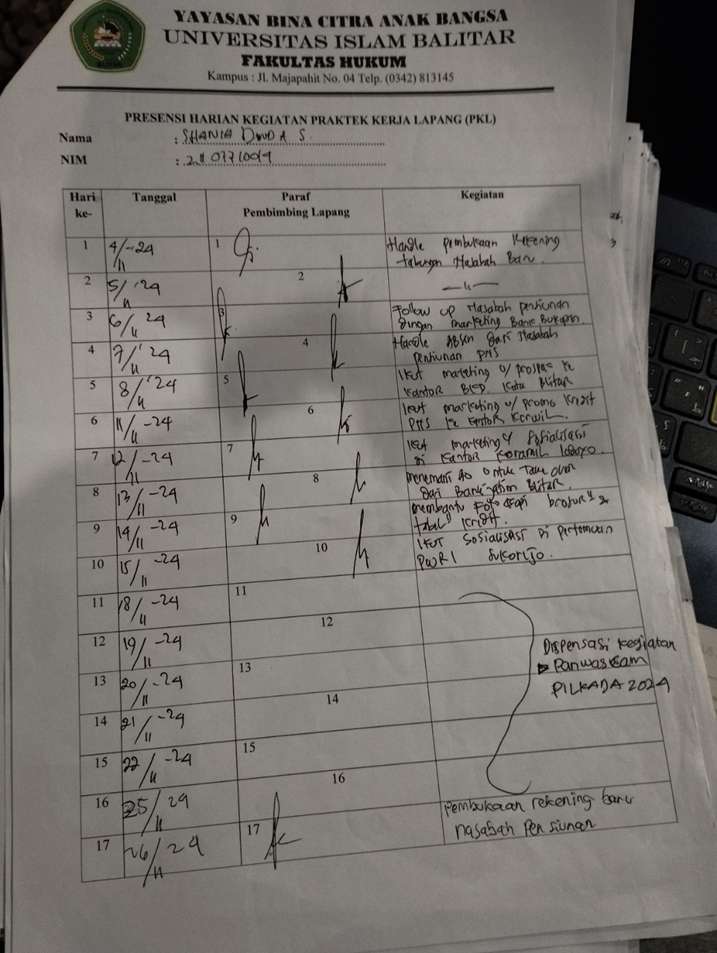 YAYASAN BINA CITRA ANAK BANGSA
UNIVERSITAS ISLAM BALITAR
FAKULTAS HUKUM
Kampus : Jl. Majapahit No. 04 Telp. (0342) 813145
PRESENSI HARIAN KEGIATAN PRAKTEK KERJA LAPANG (PKL)
Nama : SHANIA S.
NIM :
Hari ke- Tanggal Paraf Pembimbing Lapang Kegiatan
1 4/11-24 1 Handle Pembukaan Rekening
tabungan Nasabah Baru.
2 5/11 '24 2 —〃—
3 6/11 '24 3 Follow up Nasabah pensiunan
dengan marketing Bank Bukopin.
4 7/11 '24 4 Handle Absen dari Nasabah
pensiunan PNS
5 8/11 '24 5 Ikut marketing ke
Kantor Kota Blitar
6 11/11-24 6 Ikut marketing promo kredit
PNS ke kantor Korwil.
7 12/11-24 7 Ikut marketing sosialisasi
di Kantor Koramil
8 13/11-24 8 menemani untuk Take over
dari Bank Blitar.
9 14/11-24 9 membantu brosur &
tabel kredit.
10 15/11-24 10 Ikut Sosialisasi di pertemuan
PWRI Sukorejo.
11 18/11-24 11
12 19/11-24 12
13 20/11-24 13
14 21/11-24 14
15 22/11-24 15
Dispensasi kegiatan
Panwascam
PILKADA 2024
16 25/11 24 16 pembukaan rekening baru
nasabah Pensiunan
17 26/11 24 17